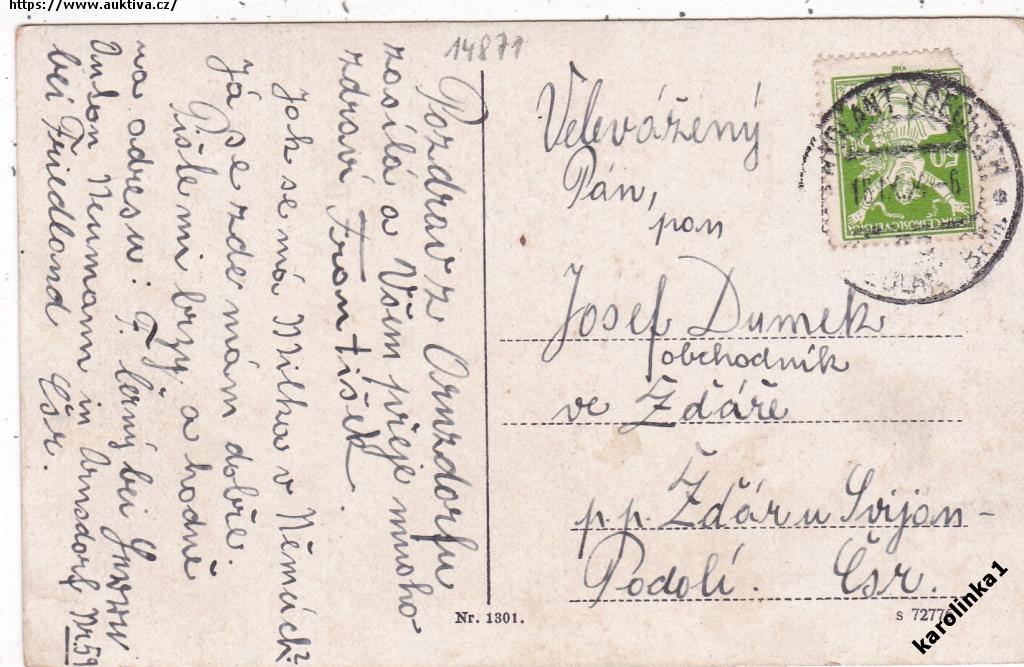 https://www.auktiva.cz/
14871
Pozdrav z Arnzdorfu
zasílá a Všem přeje mnoho
zdraví František.
Jak se má Milka v Němcích?
Já se zde mám dobře.
Pište mi brzy a hodně
na adresu. F. Černý bei Herrn
Anton Neumann in Arnsdorf Nr. 59
bei Friedland Čsr.
Velevážený
Pán,
pan
Josef Dumek
obchodník
ve Žďáře
p.p. Žďár u Svijan-
Podolí. Čsr.
50
ČESKOSLOVENSKÁ
Nr. 1301.
s 7277
karolinka1